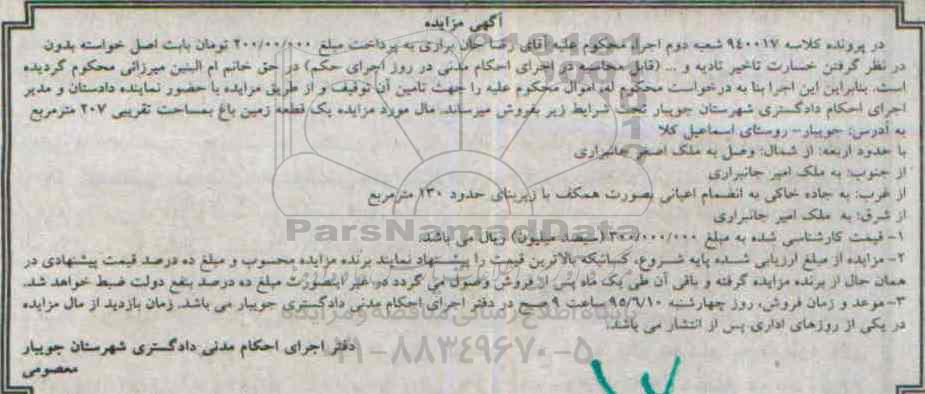 آگهی مزایده
در پرونده کلاسه ۹۴۰۰۱۷ شعبه دوم اجراء محکوم علیه آقای رضا خان براری به پرداخت مبلغ ۲۰۰/۰۰/۰۰۰ تومان بابت اصل خواسته بدون
در نظر گرفتن خسارت تاخیر تادیه و ... (قابل محاسبه در اجرای احکام مدنی در روز اجرای حکم) در حق خانم ام البنین میرزائی محکوم گردیده
است. بنابراین این اجرا بنا به درخواست محکوم له، اموال محکوم علیه را جهت تامین آن توقیف و از طریق مزایده با حضور نماینده دادستان و مدیر
اجرای احکام دادگستری شهرستان جویبار تحت شرایط زیر بفروش میرساند. مال مورد مزایده یک قطعه زمین باغ بمساحت تقریبی ۲۰۷ مترمربع
به آدرس: جویبار- روستای اسماعیل کلا
با حدود اربعه: از شمال: وصل به ملک اصغر جانبراری
از جنوب: به ملک امیر جانبراری
از غرب: به جاده خاکی به انضمام اعیانی بصورت همکف با زیربنای حدود ۱۳۰ مترمربع
از شرق: به ملک امیر جانبراری
۱- قیمت کارشناسی شده به مبلغ ۳۰۰/۰۰۰/۰۰۰ (سیصد میلیون) ریال می باشد.
۲- مزایده از مبلغ ارزیابی شده پایه شروع، کسانیکه بالاترین قیمت را پیشنهاد نمایند برنده مزایده محسوب و مبلغ ده درصد قیمت پیشنهادی در
همان حال از برنده مزایده گرفته و باقی آن طی یک ماه پس از فروش وصول می گردد در غیر اینصورت مبلغ ده درصد بنفع دولت ضبط خواهد شد.
۳- موعد و زمان فروش، روز چهارشنبه ۹۵/۹/۱۰ ساعت ۹ صبح در دفتر اجرای احکام مدنی دادگستری جویبار می باشد. زمان بازدید از مال مزایده
در یکی از روزهای اداری پس از انتشار می باشد.
دفتر اجرای احکام مدنی دادگستری شهرستان جویبار
معصومی
ParsNamadData
پایگاه اطلاع رسانی مناقصه و مزایده
۰۲۱-۸۸۳۴۹۶۷۰-۵